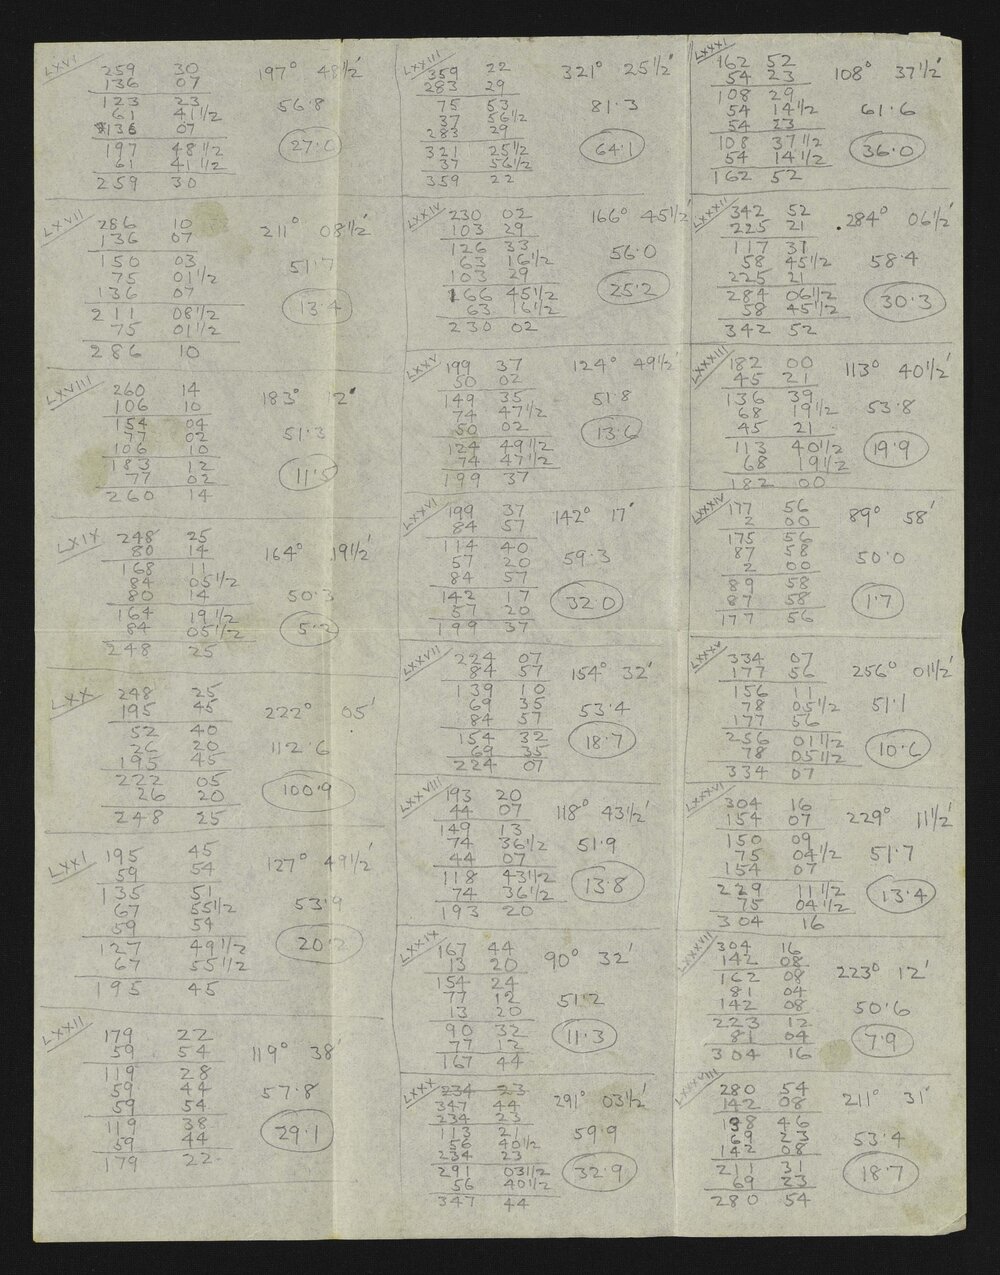 LXVI
259 30 197° 48½'
136 07
123 23 56.8
61 41½
136 07
197 48½
61 41½
259 30
LXVII
286 10 211° 08½'
136 07
150 03 51.7
75 01½
136 07 13.4
211 08½
75 01½
286 10
LXVIII
260 14 183° 12'
106 10
154 04 51.3
77 02
106 10
183 12 11.5
77 02
260 14
LXIX
248 25 164° 19½'
80 14
168 11
84 05½ 50.3
80 14
164 19½ 5.2
84 05½
248 25
LXX
248 25 222° 05'
195 45
52 40 112.6
26 20
195 45
222 05 100.9
26 20
248 25
LXXI
195 45 127° 49½'
59 54
135 51 53.9
67 55½
59 54 20.2
127 49½
67 55½
195 45
LXXII
179 22 119° 38'
59 54
119 28
59 44 57.8
59 54
119 38 29.1
59 44
179 22
LXXIII
359 22 321° 25½'
283 29
75 53 81.3
37 56½
283 29
321 25½ 64.1
37 56½
359 22
LXXIV
230 02 166° 45½'
103 29
126 33 56.0
63 16½
103 29 25.2
166 45½
63 16½
230 02
LXXV
199 37 124° 49½'
50 02
149 35 51.8
74 47½
50 02 13.6
124 49½
74 47½
199 37
LXXVI
199 37 142° 17'
84 57
114 40
57 20 59.3
84 57
142 17 32.0
57 20
199 37
LXXVII
224 07 154° 32'
84 57
139 10
69 35 53.4
84 57
154 32 18.7
69 35
224 07
LXXVIII
193 20 118° 43½'
44 07
149 13
74 36½ 51.9
44 07
118 43½ 13.8
74 36½
193 20
LXXIX
167 44 90° 32'
13 20
154 24
77 12 51.2
13 20
90 32 11.3
77 12
167 44
LXXX
234 23 291° 03½'
347 44
234 23
113 21 59.9
56 40½
234 23
291 03½ 32.9
56 40½
347 44
LXXXI
162 52 108° 37½'
54 23
108 29
54 14½ 61.6
54 23
108 37½ 36.0
54 14½
162 52
LXXXII
342 52 284° 06½'
225 21
117 31
58 45½ 58.4
225 21
284 06½ 30.3
58 45½
342 52
LXXXIII
182 00 113° 40½'
45 21
136 39
68 19½ 53.8
45 21
113 40½ 19.9
68 19½
182 00
LXXXIV
177 56 89° 58'
2 00
175 56
87 58 50.0
2 00
89 58 1.7
87 58
177 56
LXXXV
334 07 256° 01½'
177 56
156 11
78 05½ 51.1
177 56
256 01½ 10.6
78 05½
334 07
LXXXVI
304 16 229° 11½'
154 07
150 09
75 04½ 51.7
154 07
229 11½ 13.4
75 04½
304 16
LXXXVII
304 16
142 08 223° 12'
162 08
81 04
142 08 50.6
223 12
81 04 7.9
304 16
LXXXVIII
280 54 211° 31'
142 08
138 46
69 23 53.4
142 08
211 31 18.7
69 23
280 54